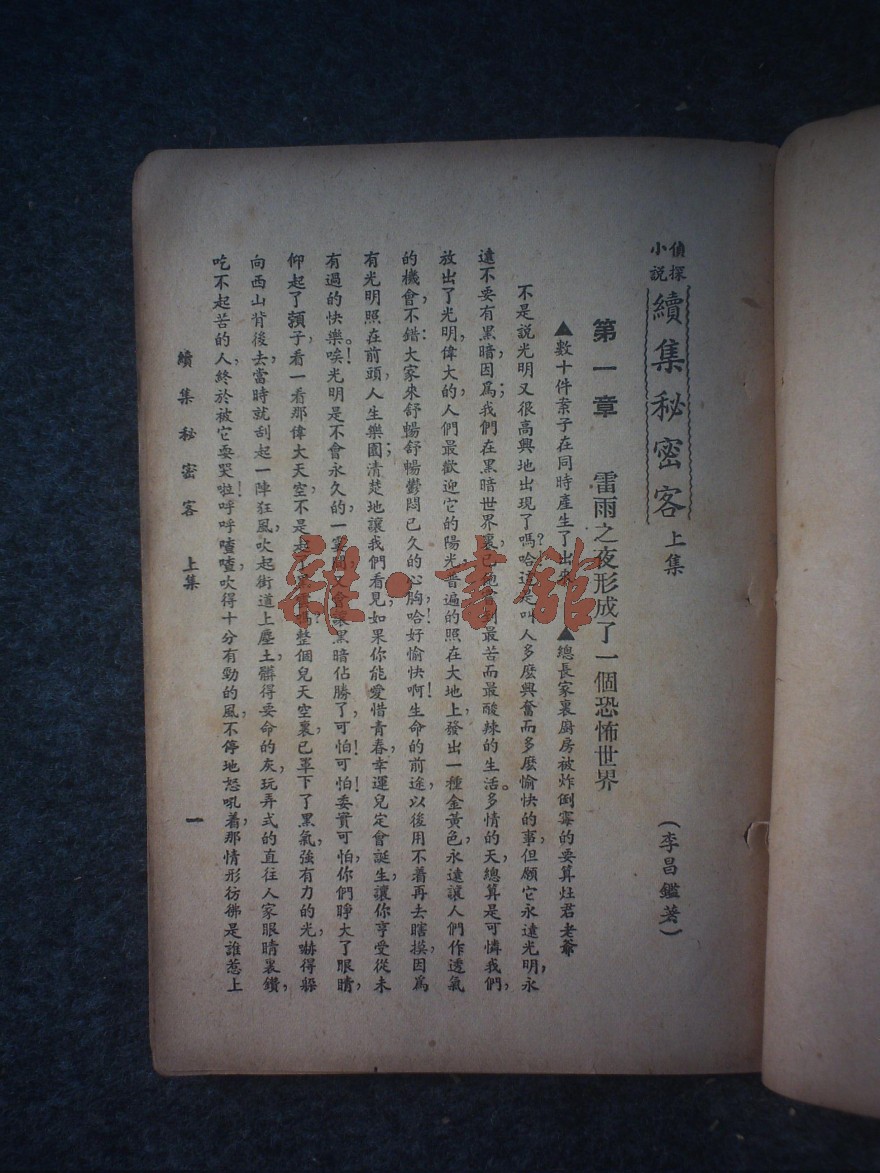 偵探小說 續集秘密客 上集
（李昌鑑著）
第一章 雷雨之夜形成了一個恐怖世界
▲數十件案子在同時產生了出來 ▲總長家裏廚房被炸倒霉的要算灶君老爺
不是說光明又很高興地出現了嗎？哈！這是叫人多麼興奮而多麼愉快的事，但願它永遠光明，永
遠不要有黑暗；因爲我們在黑暗世界裏，已飽嘗到最苦而最酸辣的生活。多情的天，總算是可憐我們，
放出了光明，偉大的人們最歡迎它的陽光普遍的照在大地上，發出一種金黃色，永遠讓人們作透氣
的機會，不錯：大家來舒暢舒暢鬱悶已久的心胸，哈！好愉快啊！生命的前途，以後用不着再去瞎摸，因爲
有光明照在前頭，人生樂園；清楚地讓我們看見，如果你能愛惜青春，幸運兒定會誕生，讓你享受從未
有過的快樂。唉！光明是不會永久的，一霎間又會讓黑暗佔勝了，可怕！可怕！委實可怕，你們睜大了眼睛，
仰起了頸子，看一看那偉大天空，不是起了 整個兒天空裏，已罩下了黑氣，強有力的光，嚇得躲
向西山背後去，當時就刮起一陣狂風，吹起街道上塵土，髒得要命的灰，玩弄式的直往人家眼睛裏鑽，
吃不起苦的人，終於被它耍哭啦！呼呼喳喳，吹得十分有勁的風，不停地怒吼着，那情形彷彿是誰惹上
續集秘密客 上集
一
雜·書館